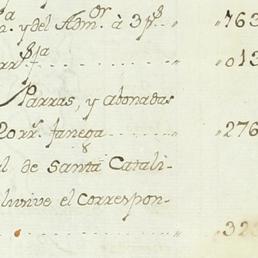 n. y del Adm.or à 3 p.s " " 763
rr.s ͭ " 013
Parras, y abonadas
20 rr.s fanega " " 276
l de Santa Catali-
lusive el Correspon-
" " 323